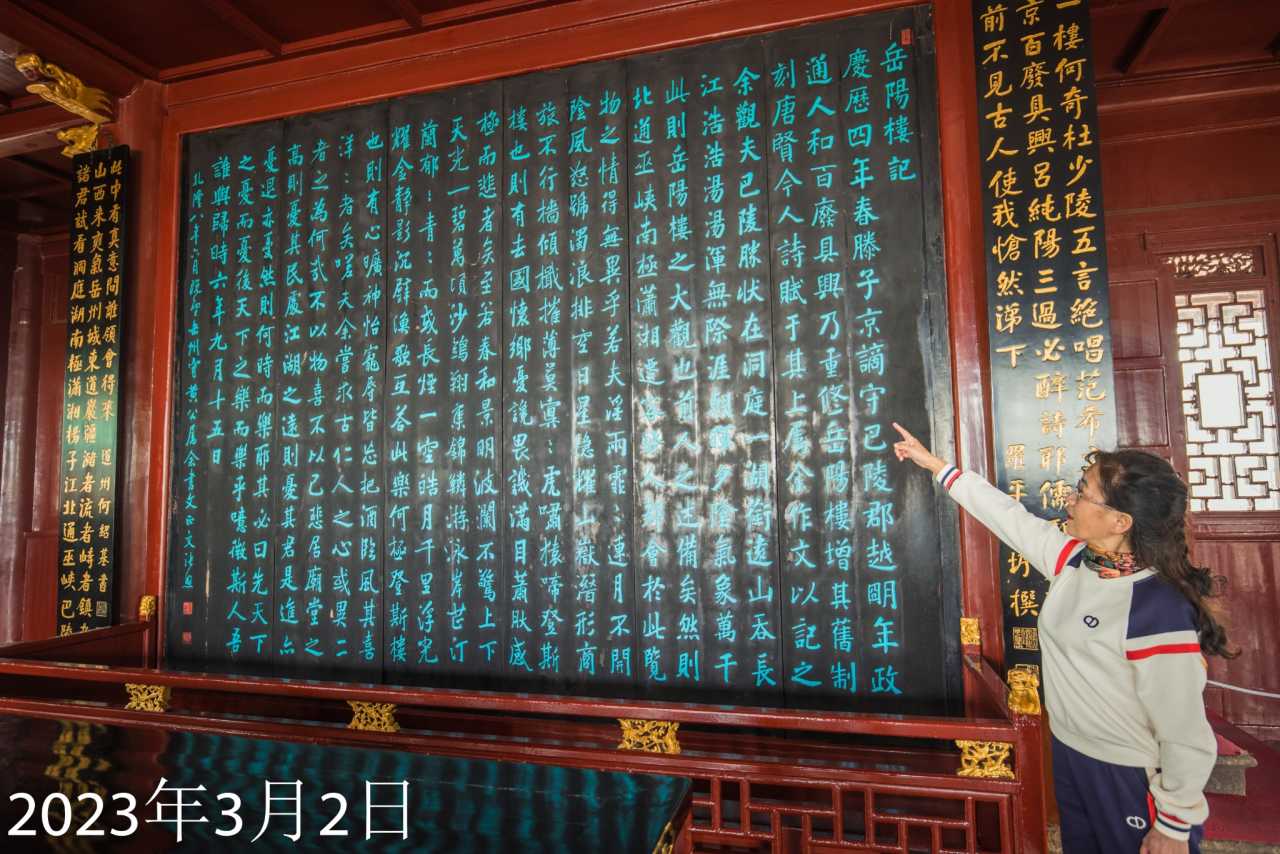 一樓何奇杜少陵五言絕唱范希
京百廢具興呂純陽三過必醉詩耶儒
前不見古人使我愴然涕下
撰
岳陽樓記
慶歷四年春滕子京謫守巴陵郡越明年政
通人和百廢具興乃重修岳陽樓增其舊制
刻唐賢今人詩賦于其上屬余作文以記之
余觀夫巴陵勝狀在洞庭一湖銜遠山吞長
江浩浩湯湯渾無際涯朝暉夕陰氣象萬千
此則岳陽樓之大觀也前人之述備矣然則
北通巫峽南極瀟湘遷客騷人多會於此覽
物之情得無異乎若夫淫雨霏:連月不開
陰風怒號濁浪排空日星隱耀山嶽潛形商
旅不行檣傾檝摧薄莫冥:虎嘯猿啼登斯
樓也則有去國懷鄉憂讒畏譏滿目蕭然感
極而悲者矣至若春和景明波瀾不驚上下
天光一碧萬頃沙鷗翔集錦鱗游泳岸芷汀
蘭郁:青:而或長煙一空皓月千里浮光
耀金靜影沉璧漁歌互答此樂何極登斯樓
也則有心曠神怡寵辱皆忘把酒臨風其喜
洋:者矣嗟夫余嘗求古仁人之心或異二
者之為何哉不以物喜不以己悲居廟堂之
高則憂其民處江湖之遠則憂其君是進亦
憂退亦憂然則何時而樂耶其必曰先天下
之憂而憂後天下之樂而樂乎噫微斯人吾
誰與歸時六年九月十五日
乾隆八年六月
諸君試看洞庭湖南極瀟湘揚子江北通巫峽巴陵
山西來爽氣岳州城東道巖疆瀦者流者峙者鎮
此中有真意問誰領會得來 道州何紹基書
2023年3月2日